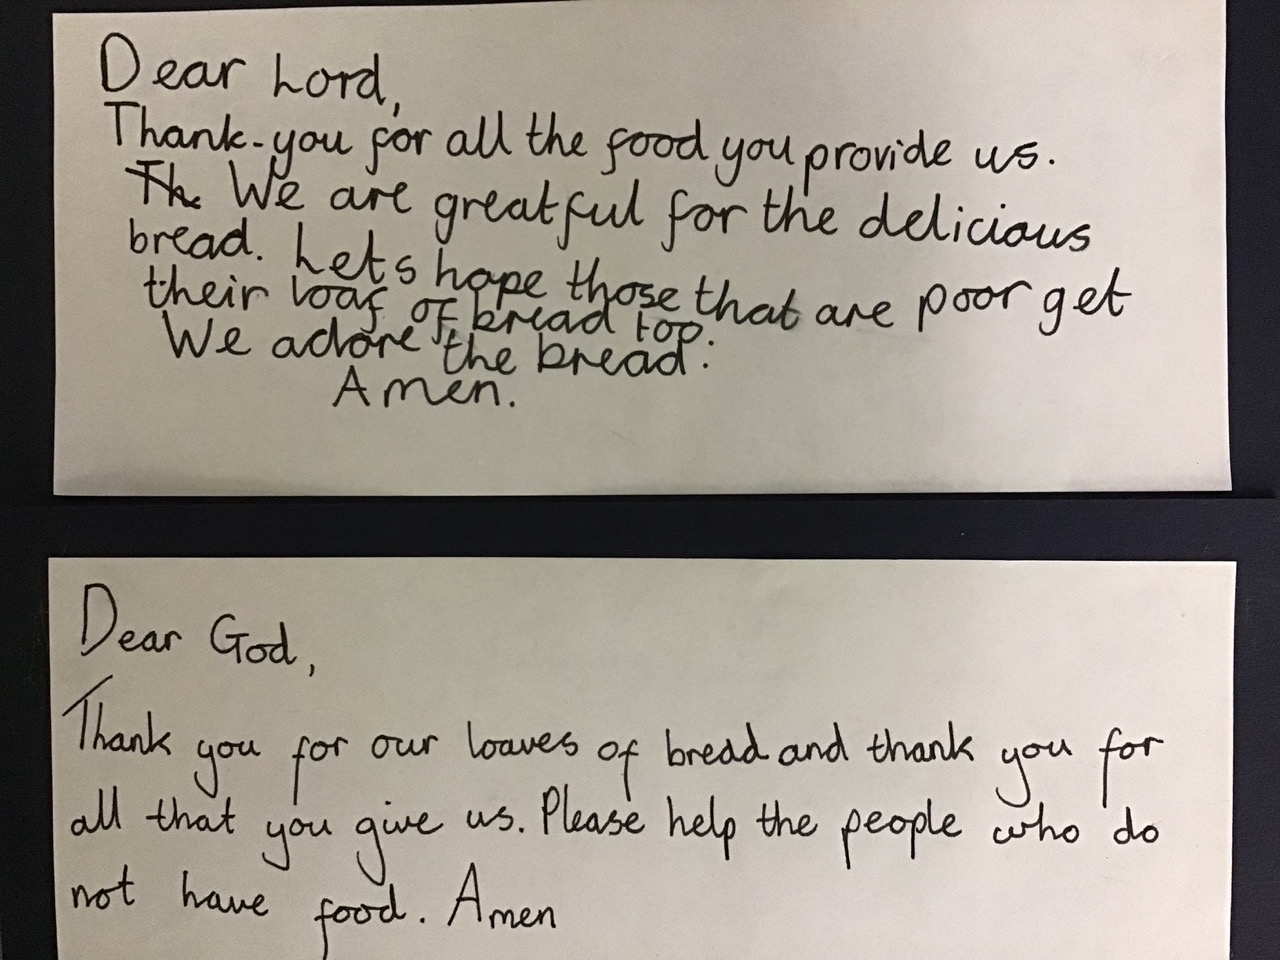 Dear Lord,
Thank-you for all the food you provide us.
Th We are greatful for the delicious
bread. Lets hope those that are poor get
their loaf of bread too.
We adore the bread.
Amen.
Dear God,
Thank you for our loaves of bread and thank you for
all that you give us. Please help the people who do
not have food. Amen